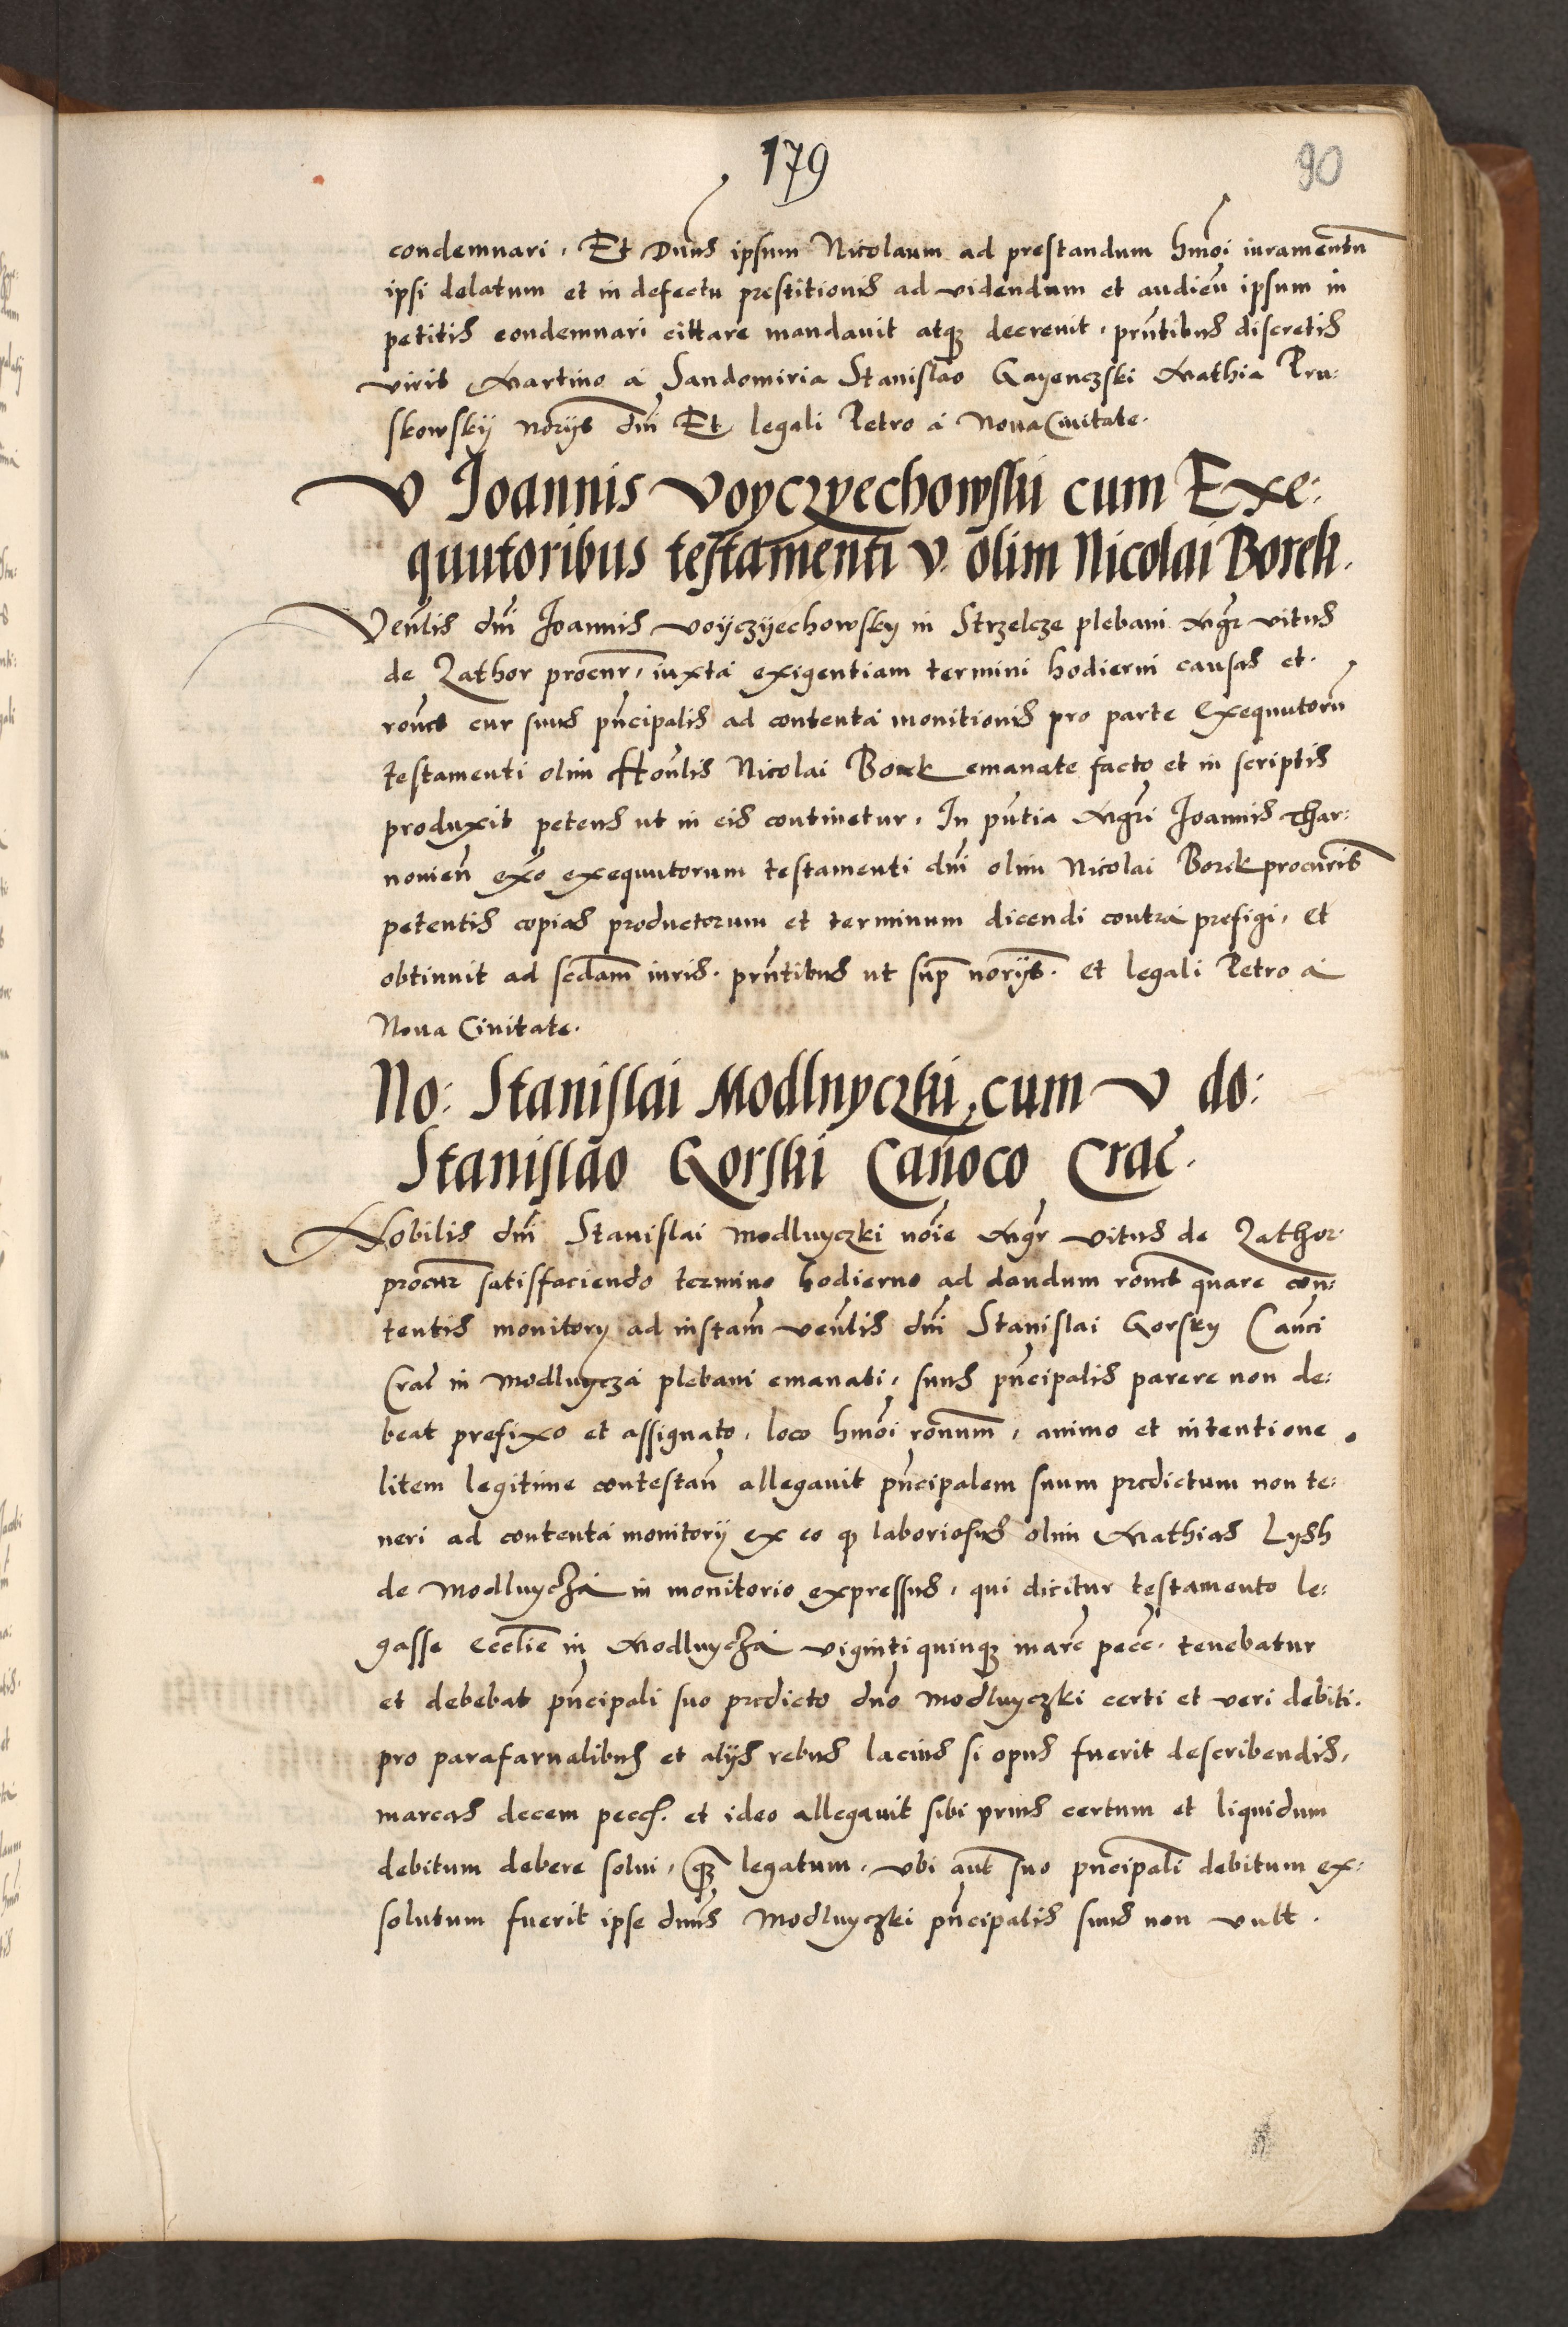 179
90
condemnari. Et Dn̄us ipsum Nicolaum ad prestandum hm̄oi iuramentū
ipsi delatum et in defectu prestitionis ad videndum et audien̄ ipsum in
petitis condemnari cittare mandavit atq; decrevit. prn̄tibus discretis
viris Martino a Sandomiria Stanislao Gayenczski Mathia Pru:
skowskÿ nor̄ijs dn̄i Et legali Petro a Nova Civitate.
V Joannis Voyczyechowskii cum Exe:
quutoribus testamenti v. olim Nicolai Borek.
Ven̄lis dn̄i Joannis Voÿczÿechowsky in Strzelcze plebani Mgr̄ Vitus
de Zathor procur̄, iuxta exigentiam termini hodierni causas et
ron̄es cur suus pn̄cipalis ad contenta monitionis pro parte Exequutorū
testamenti olim Hon̄lis Nicolai Borek emanate facto et in scriptis
produxit petens ut in eis continetur. In pn̄tia Mgr̄i Joannis Thar:
novien̄ ex̄o exequutorum testamenti dn̄i olim Nicolai Borek procur̄is
petentis copias productorum et terminum dicendi contra prefigi, et
obtinuit ad sēdam iuris. prn̄tibus ut sup̄ nor̄ijs. et legali Petro a
Nova Civitate.
No: Stanislai Modlnyczki, cum V do:
Stanislāo Gorski Can̄oco Crac̄.
Nobilis dn̄i Stanislai Modlnyczki noīe Mgr̄ Vitus de Zathor
procur̄ satisfaciendo termino hodierno ad dandum ron̄es quare con:
tentis monitory ad instam̄ ven̄lis dn̄i Stanislai Gorsky Can̄ci
Crac̄ in Modlnycza plebani emanati, suus pn̄cipalis parere non de:
beat prefixo et assignato, loco hm̄oi ronum̄, animo et intentione
litem legitime contestan̄ allegavit pn̄cipalem suum predictum non te:
neri ad contenta monitorÿ ex eo q̄ laboriosus olim Mathias Lysh
de Modlnycza in monitorio expressus, qui dicitur testamento le:
gasse Eccl̄ie in Modlnycza viginti quinq; marc̄ pecc̄. tenebatur
et debebat pn̄cipali suo predicto dn̄o Modlnyczki certi et veri debiti.
pro parafarnalibus et alÿs rebus lacius si opus fuerit describendis,
marcas decem pecc̄. et ideo allegavit sibi prius certum et liquidum
debitum debere solui, q̄z legatum, Ubi aut̄ suo pn̄cipali debitum ex:
solutum fuerit ipse dn̄us Modlnyczki pn̄cipalis suus non vult.